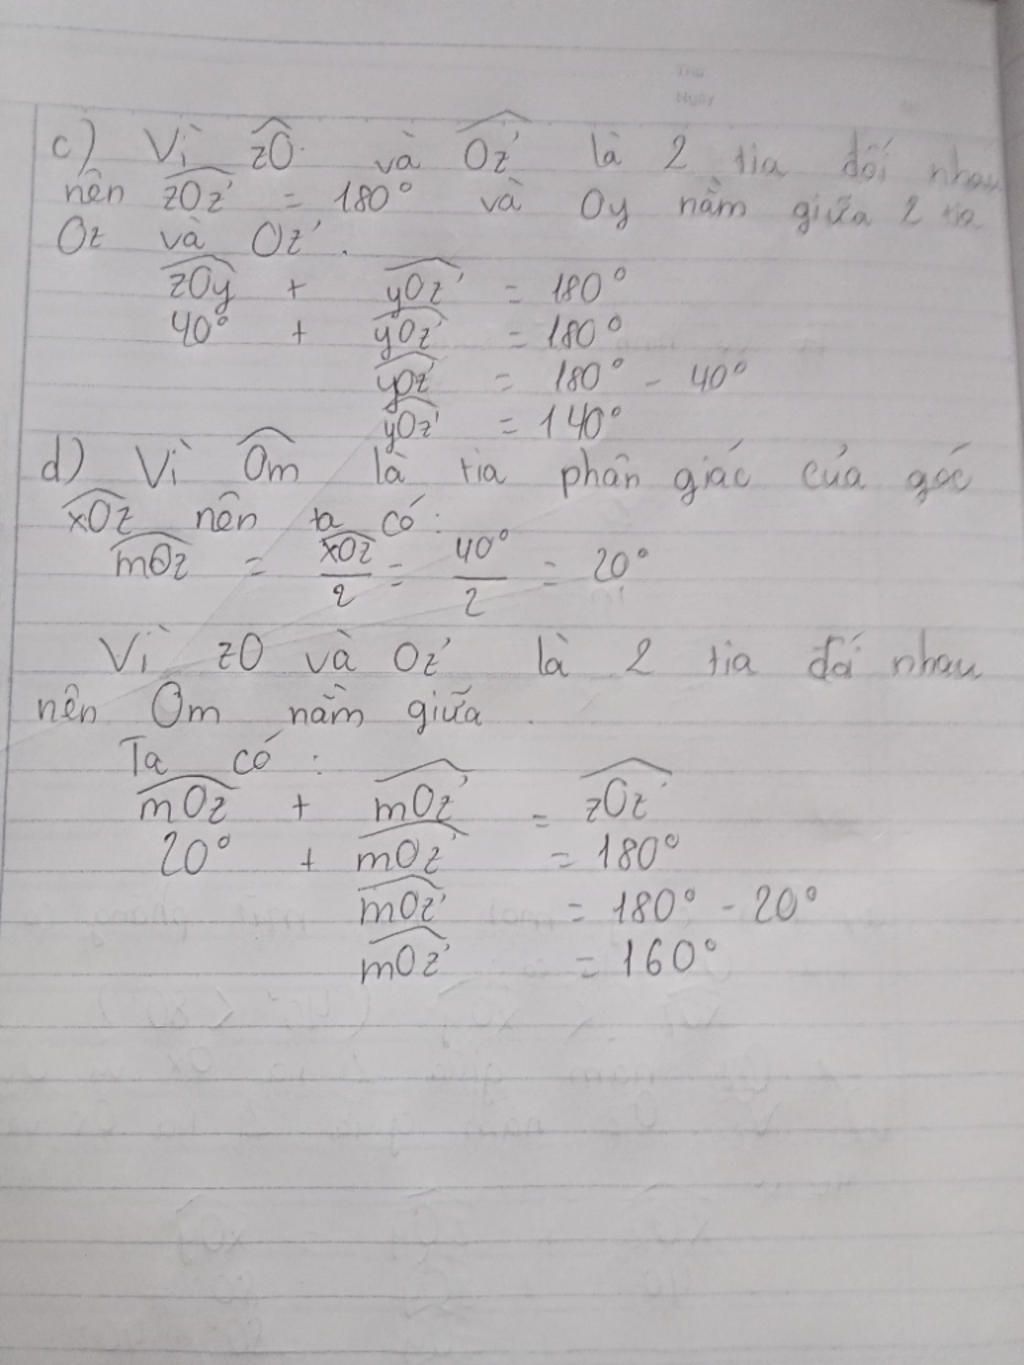 Thứ
Ngày
c) Vì zO và Oz' là 2 tia đối nhau
nên zOz' = 180° và Oy nằm giữa 2 tia
Oz và Oz'.
zOy + yOz' = 180°
40° + yOz' = 180°
yOz' = 180° - 40°
yOz' = 140°
d) Vì Om là tia phân giác của góc
xOz nên ta có:
mOz = xOz/2 = 40°/2 = 20°
Vì zO và Oz' là 2 tia đối nhau
nên Om nằm giữa.
Ta có:
mOz + mOz' = zOz'
20° + mOz' = 180°
mOz' = 180° - 20°
mOz' = 160°